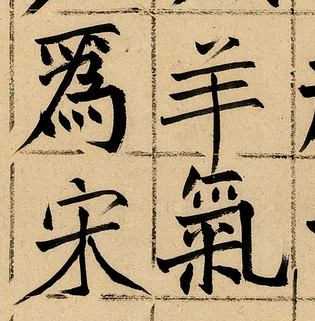 羊氣
爲宋